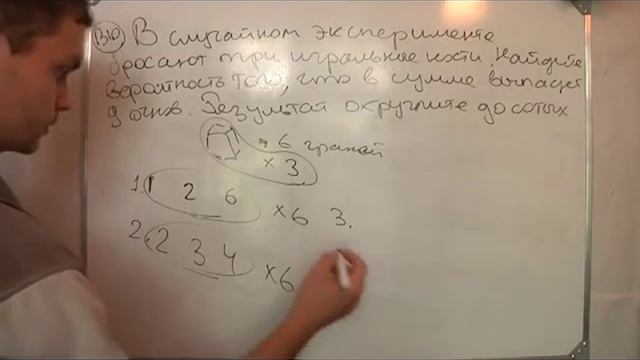 В10 В случайном эксперименте
бросают три игральные кости. Найдите
вероятность того, что в сумме выпадет
9 очков. Результат округлите до сотых
→ 6 граней
× 3
1. 1 2 6 ×6 3.
2. 2 3 4 ×6